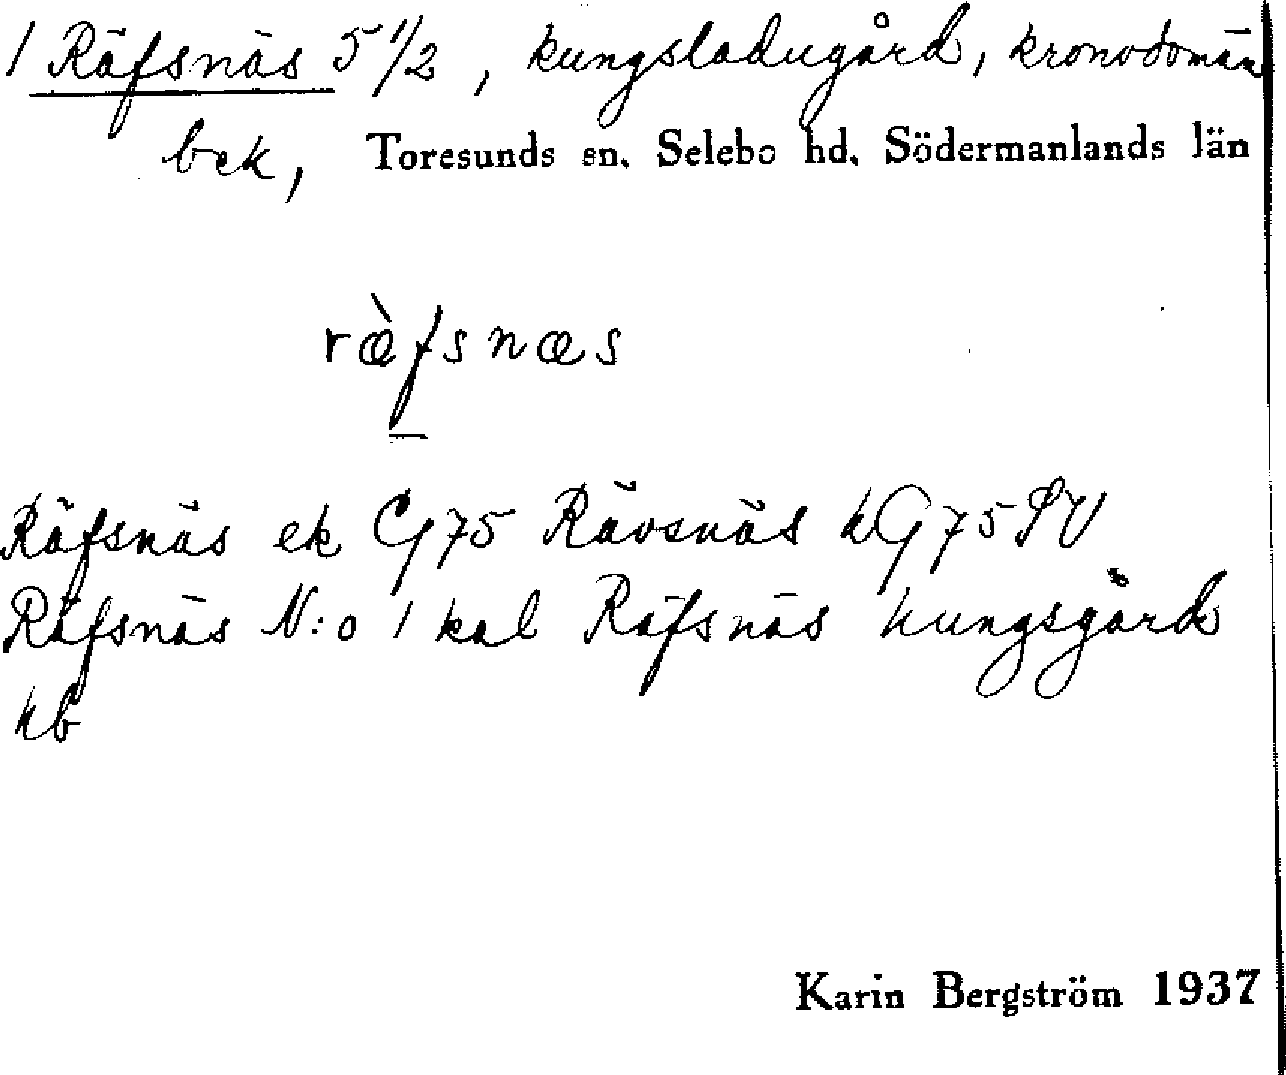 1 Räfsnäs 5 1/2, kungsladugård, kronodomän
bek, Toresunds sn. Selebo hd. Södermanlands län
ræ̀fsnæs
Räfsnäs ek G75 Rävsnäs hG75SV
Räfsnäs N:o 1 kal Räfsnäs kungsgård
hb
Karin Bergström 1937